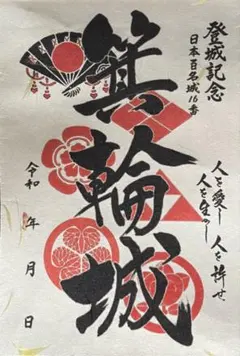 登城記念
日本百名城16番
箕輪城
人を愛し 人を許せ
人を生かし
令和 年 月 日